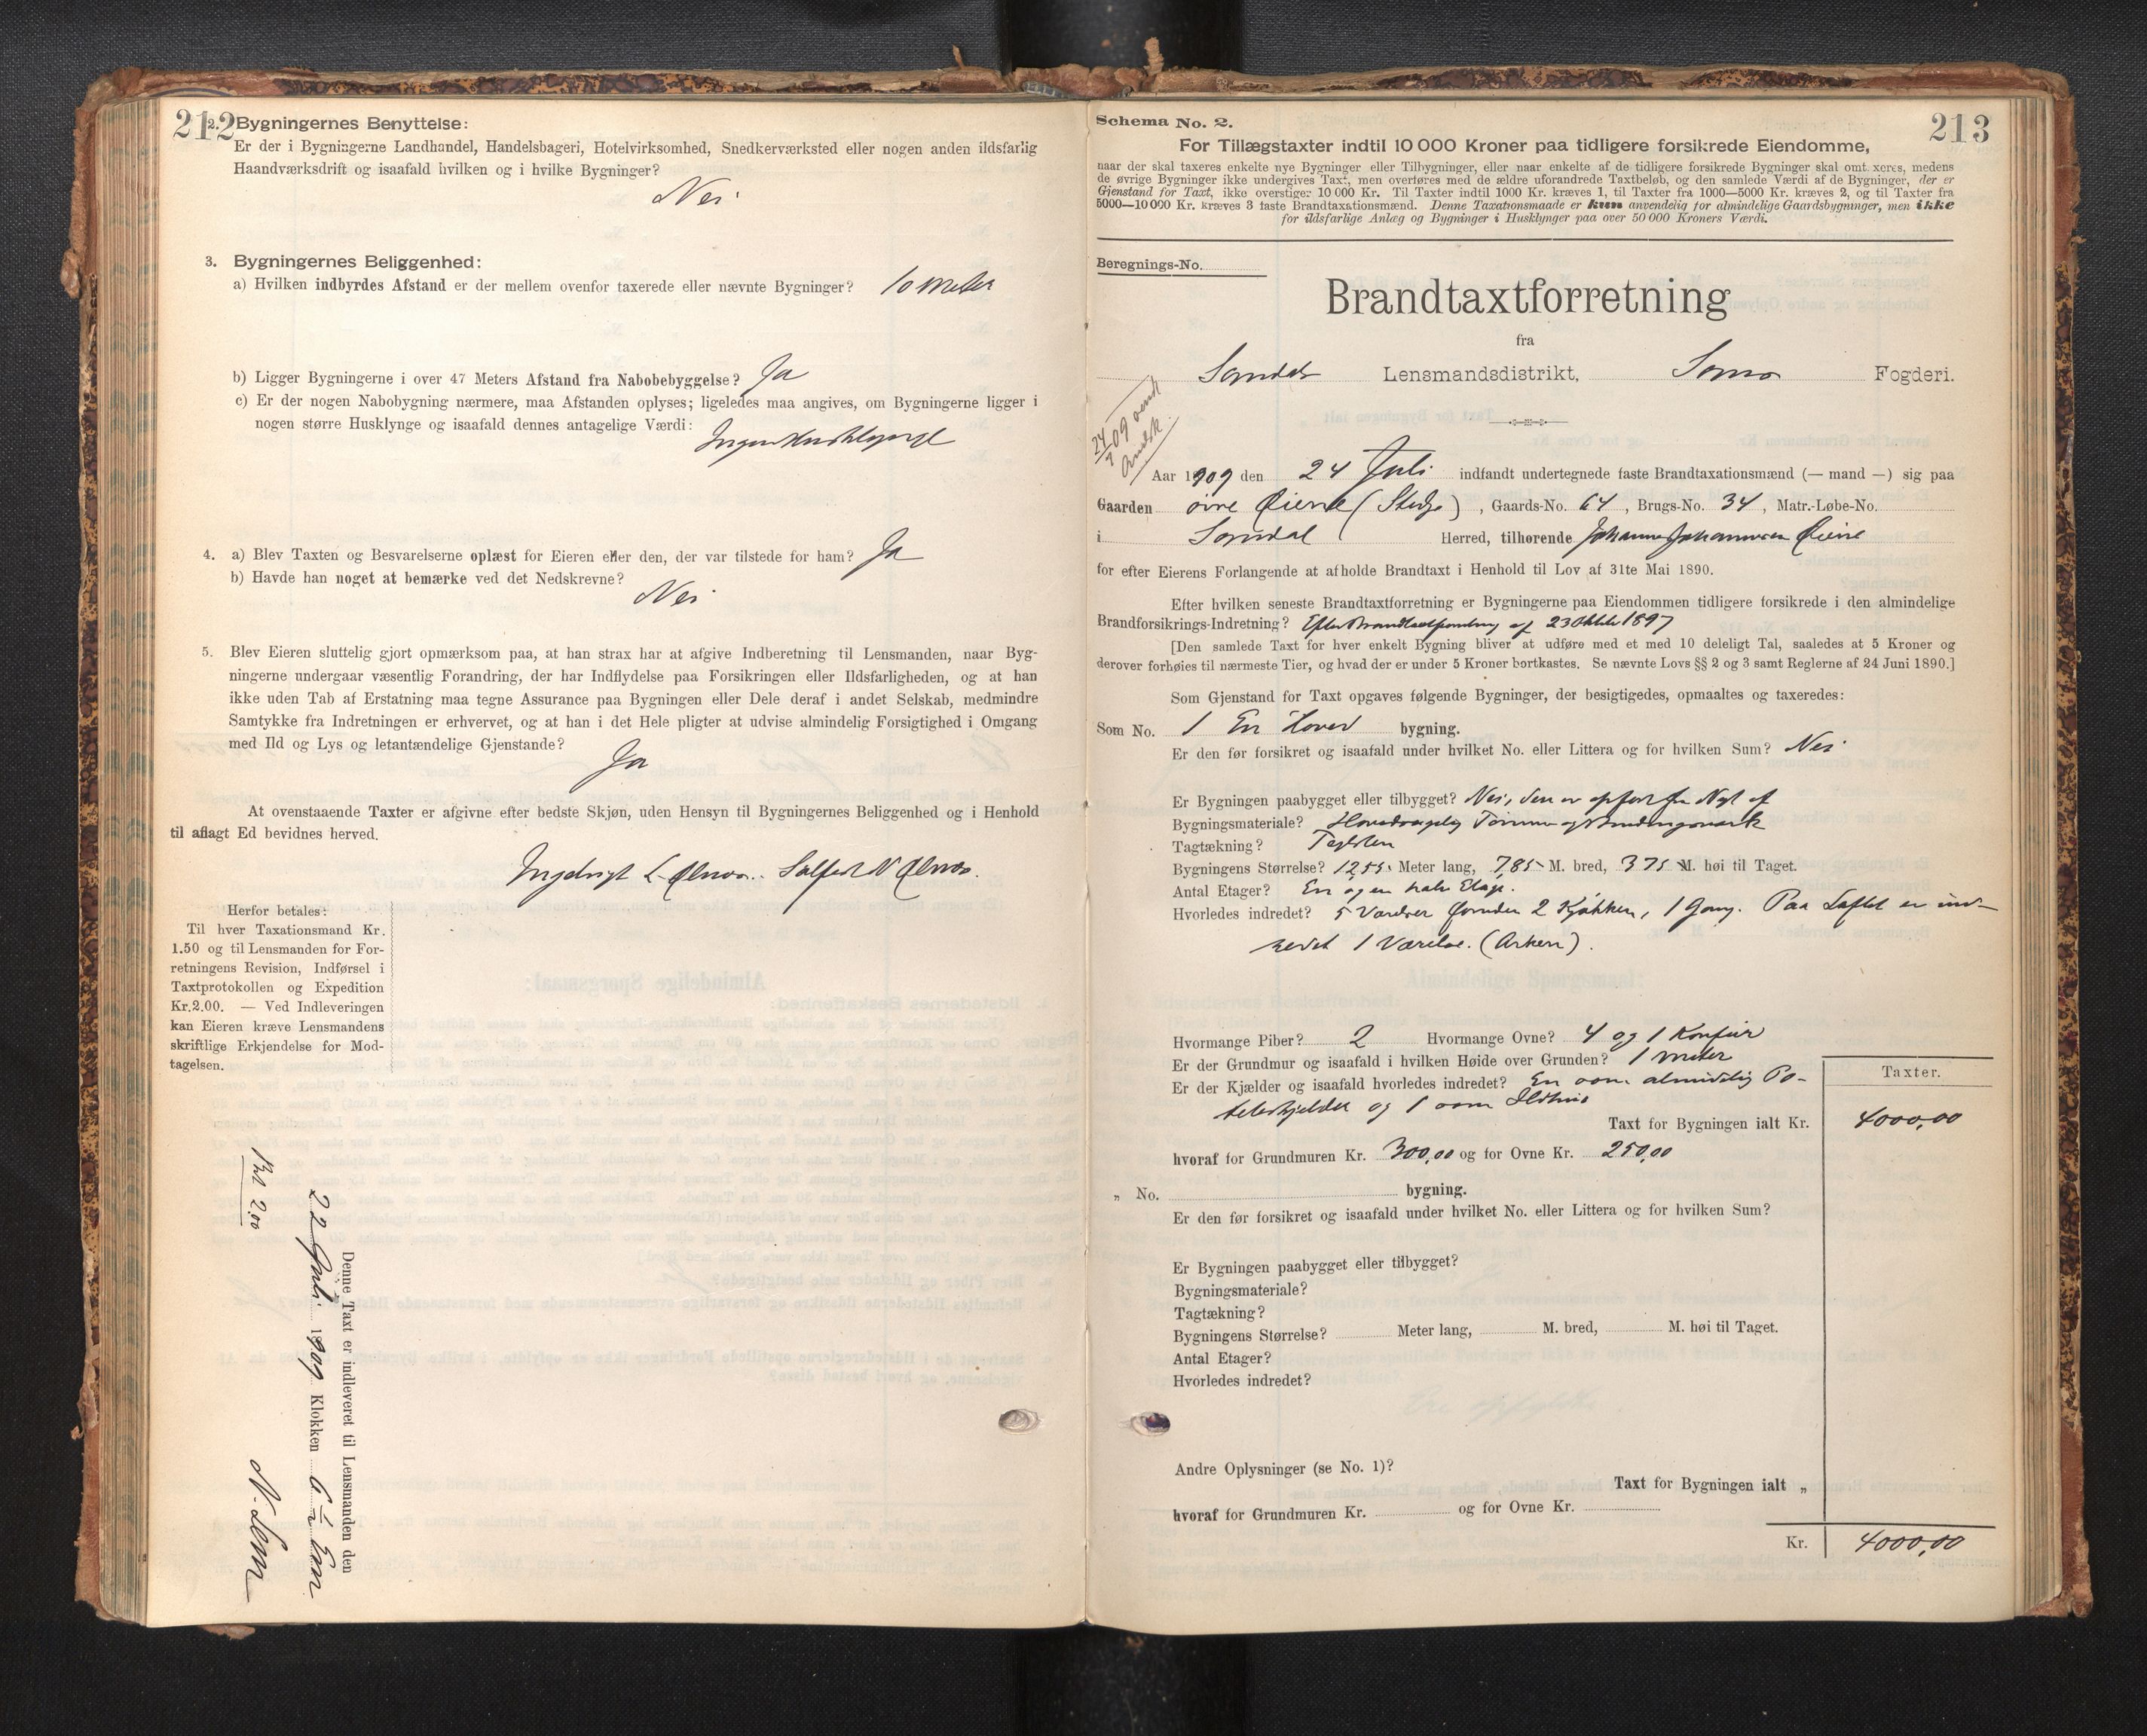 212
2. Bygningernes Benyttelse:
Er der i Bygningerne Landhandel, Handelsbageri, Hotelvirksomhed, Snedkerværksted eller nogen anden ildsfarlig
Haandværksdrift og isaafald hvilken og i hvilke Bygninger?
Nei
3. Bygningernes Beliggenhed:
a) Hvilken indbyrdes Afstand er der mellem ovenfor taxerede eller nævnte Bygninger? 10 meter
b) Ligger Bygningerne i over 47 Meters Afstand fra Nabobebyggelse? Ja
c) Er der nogen Nabobygning nærmere, maa Afstanden oplyses; ligeledes maa angives, om Bygningerne ligger i
nogen større Husklynge og isaafald dennes antagelige Værdi: Ingen
4. a) Blev Taxten og Besvarelserne oplæst for Eieren eller den, der var tilstede for ham? Ja
b) Havde han noget at bemærke ved det Nedskrevne?
Nei
5. Blev Eieren sluttelig gjort opmærksom paa, at han strax har at afgive Indberetning til Lensmanden, naar Byg-
ningerne undergaar væsentlig Forandring, der har Indflydelse paa Forsikringen eller Ildsfarligheden, og at han
ikke uden Tab af Erstatning maa tegne Assurance paa Bygningen eller Dele deraf i andet Selskab, medmindre
Samtykke fra Indretningen er erhvervet, og at han i det Hele pligter at udvise almindelig Forsigtighed i Omgang
med Ild og Lys og letantændelige Gjenstande?
Ja
At ovenstaaende Taxter er afgivne efter bedste Skjøn, uden Hensyn til Bygningernes Beliggenhed og i Henhold
til aflagt Ed bevidnes herved.
Herfor betales:
Til hver Taxationsmand Kr.
1.50 og til Lensmanden for For-
retningens Revision, Indførsel i
Taxtprotokollen og Expedition
Kr.2.00. — Ved Indleveringen
kan Eieren kræve Lensmandens
skriftlige Erkjendelse for Mod-
tagelsen.
Denne Taxt er indleveret til Lensmanden den
22 Juli 1909 Klokken 6
2.00
213
Schema No. 2.
For Tillægstaxter indtil 10 000 Kroner paa tidligere forsikrede Eiendomme,
naar der skal taxeres enkelte nye Bygninger eller Tilbygninger, eller naar enkelte af de tidligere forsikrede Bygninger skal omt xeres, medens
de øvrige Bygninger ikke undergives Taxt, men overføres med de ældre uforandrede Taxtbeløb, og den samlede Værdi af de Bygninger, der er
Gjenstand for Taxt, ikke overstiger 10 000 Kr. Til Taxter indtil 1000 Kr. kræves 1, til Taxter fra 1000—5000 Kr. kræves 2, og til Taxter fra
5000—10 000 Kr. kræves 3 faste Brandtaxationsmænd. Denne Taxationsmaade er kun anvendelig for almindelige Gaardsbygninger, men ikke
for ildsfarlige Anlæg og Bygninger i Husklynger paa over 50 000 Kroners Værdi.
Beregnings-No.
Brandtaxtforretning
fra
Lensmandsdistrikt, Fogderi.
Aar 1909 den 24 Juli indfandt undertegnede faste Brandtaxationsmænd (— mand —) sig paa
Gaarden øvre Øiene , Gaards-No. 64 , Brugs-No. 34 , Matr.-Løbe-No.
i Sogndal Herred, tilhørende Johannes Johannesen Øiene
for efter Eierens Forlangende at afholde Brandtaxt i Henhold til Lov af 31te Mai 1890.
Efter hvilken seneste Brandtaxtforretning er Bygningerne paa Eiendommen tidligere forsikrede i den almindelige
Brandforsikrings-Indretning? Efter Brandtaxtforretning af 23 Oktbr 1897
[Den samlede Taxt for hver enkelt Bygning bliver at udføre med et med 10 deleligt Tal, saaledes at 5 Kroner og
derover forhøies til nærmeste Tier, og hvad der er under 5 Kroner bortkastes. Se nævnte Lovs §§ 2 og 3 samt Reglerne af 24 Juni 1890.]
Som Gjenstand for Taxt opgaves følgende Bygninger, der besigtigedes, opmaaltes og taxeredes:
Som No. 1 En Hoved bygning.
Er den før forsikret og isaafald under hvilket No. eller Littera og for hvilken Sum? Nei
Er Bygningen paabygget eller tilbygget? Nei, den er opført fra Nyt af
Bygningsmateriale? Hovedsagelig Tømmer og Bindingsværk
Tagtækning? Taglsten
Bygningens Størrelse? 12,55 Meter lang, 7,85 M. bred, 3,75 M. høi til Taget.
Antal Etager? En og en halv Etage.
Hvorledes indredet? 5 Værelser foruden 2 Kjøkken, 1 Gang. Paa Loftet er ind-
redet 1 Værelse. (Arken).
Hvormange Piber? 2 Hvormange Ovne? 4 og 1 Komfur
Er der Grundmur og isaafald i hvilken Høide over Grunden? 1 meter
Er der Kjælder og isaafald hvorledes indredet? En som almindelig Po-
teteskjelder og 1 som Ildhus
Taxter.
Taxt for Bygningen ialt Kr. 4000,00
hvoraf for Grundmuren Kr. 300,00 og for Ovne Kr. 250,00
„ No. bygning.
Er den før forsikret og isaafald under hvilket No. eller Littera og for hvilken Sum?
Er Bygningen paabygget eller tilbygget?
Bygningsmateriale?
Tagtækning?
Bygningens Størrelse? Meter lang, M. bred, M. høi til Taget.
Antal Etager?
Hvorledes indredet?
Andre Oplysninger (se No. 1)?
Taxt for Bygningen ialt „
hvoraf for Grundmuren Kr. og for Ovne Kr.
Kr. 4000,00